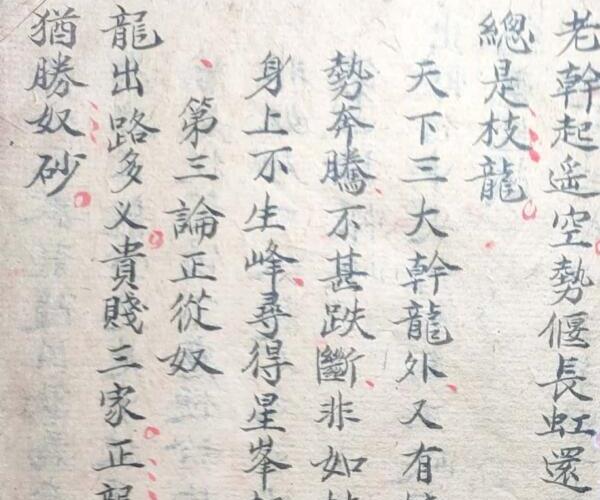 老幹起遥空勢偃長虹還
總是枝龍
天下三大幹龍外又有
勢奔騰不甚跌斷非如
身上不生峰尋得星峯
第三論正從奴
龍出路多义貴賤三家正龍
猶勝奴砂